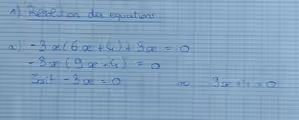 A) Résolution des équations
a) -3x(6x+4)+3x = 0
-3x(9x+4) = 0
Soit -3x=0 3x+4=0